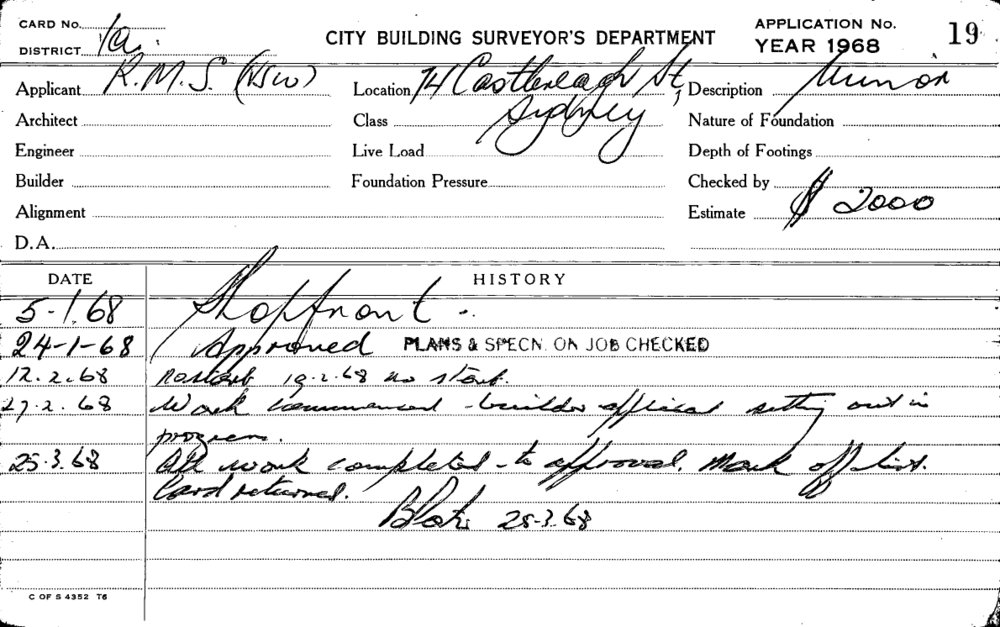 CARD No. 1a.
DISTRICT
CITY BUILDING SURVEYOR'S DEPARTMENT
APPLICATION No. 19
YEAR 1968
Applicant R.M.S. (NSW) Location 74 Castlereagh St, Description Minor
Architect Class Sydney Nature of Foundation
Engineer Live Load Depth of Footings
Builder Foundation Pressure Checked by
Alignment Estimate $ 2000
D.A.
DATE HISTORY
5-1.68 Shopfront -.
24-1-68 Approved PLANS & SPECN. ON JOB CHECKED
12.2.68 19.2.68 no start.
27.2.68 Work commenced - builders official setting out in
progress.
25.3.68 All work completed - to approval. Mark off list.
Card returned.
25.3.68
C OF S 4352 T6